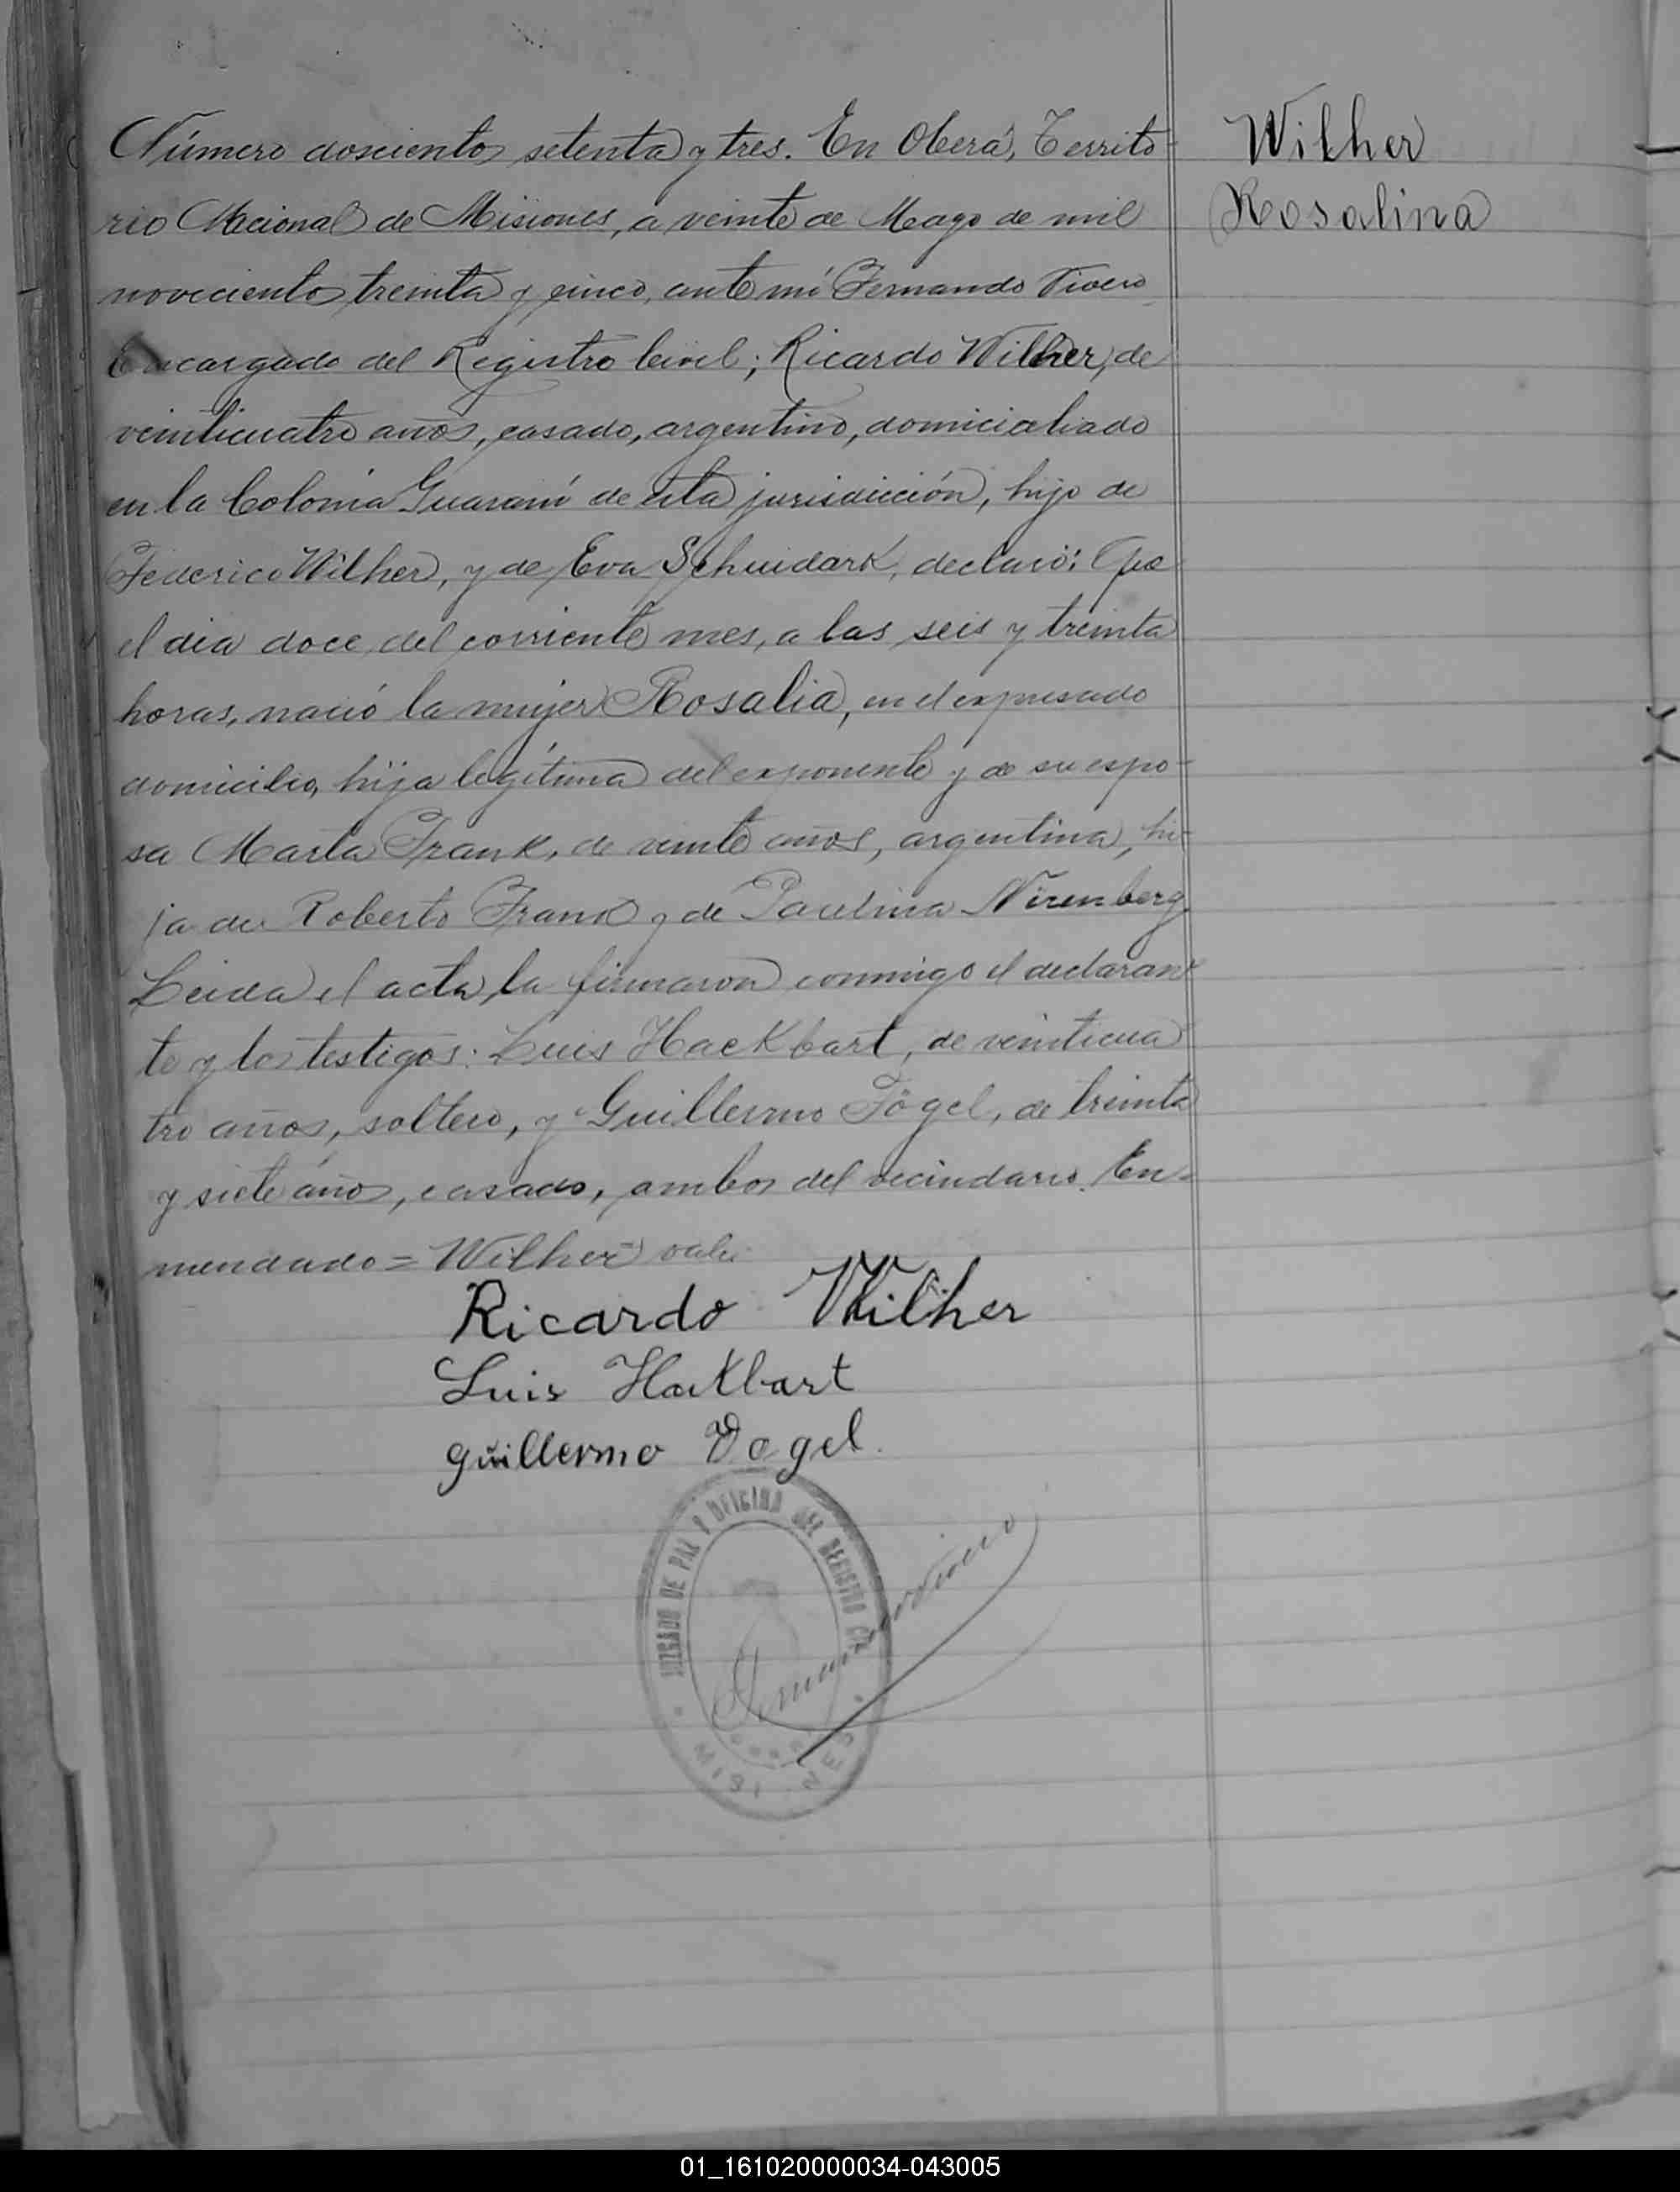 Número doscientos setenta y tres. En Oberá, Territo-
rio Nacional de Misiones, a veinte de Mayo de mil
novecientos treinta y cinco, ante mí Fernando Vivero
Encargado del Registro Civil; Ricardo Wilher, de
veinticuatro años, casado, argentino, domicialiado
en la Colonia Guaraní de esta jurisdicción, hijo de
Federico Wilher, y de Eva Schuidark, declaró: Que
el dia doce del corriente mes, a las seis y treinta
horas, nació la mujer Rosalia, en el expresado
domicilio, hija legítima del exponente y de su espo-
sa Marta Frank, de veinte años, argentina, hi-
ja de Roberto Frank y de Paulina Nirenberg
Leida el acta, la firmaron conmigo el declaran-
te y los testigos: Luis Hackbart, de veinticua
tro años, soltero, y Guillermo Fögel, de treinta
y siete años, casado, ambos del vecindario. En-
mendado = Wilher = vale.
Ricardo Wilher
Luis Hackbart
Guillermo Vogel.
JUZGADO DE PAZ Y OFICINA DEL REGISTRO CIVIL
MISIONES
Wilher
Rosalina
01_161020000034-043005